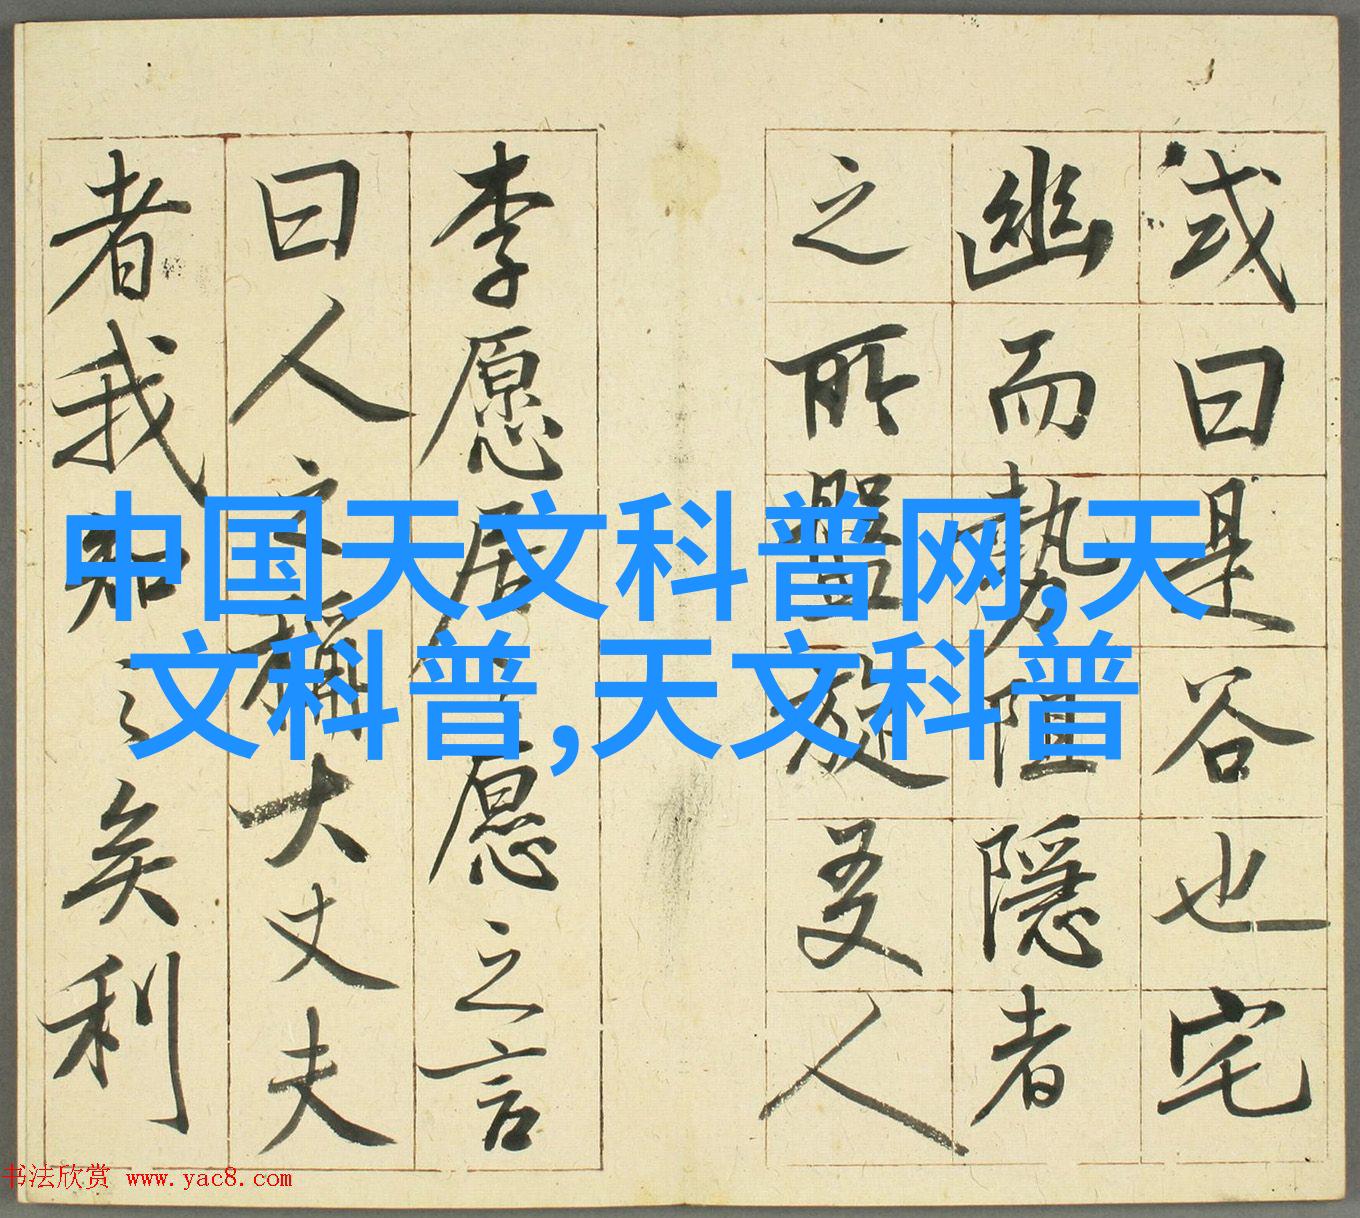 或曰是谷也宅
幽而勢阻隱者
之所盤旋友人
李愿居之愿之言
曰人之稱大丈夫
者我知之矣利
中国天文科普网,天
文科普,天文科普
书法欣赏 www.yac8.com